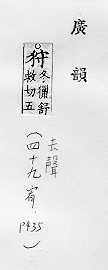 廣韻
狩
冬獵舒
救切五
去聲
(四十九宥. P435)